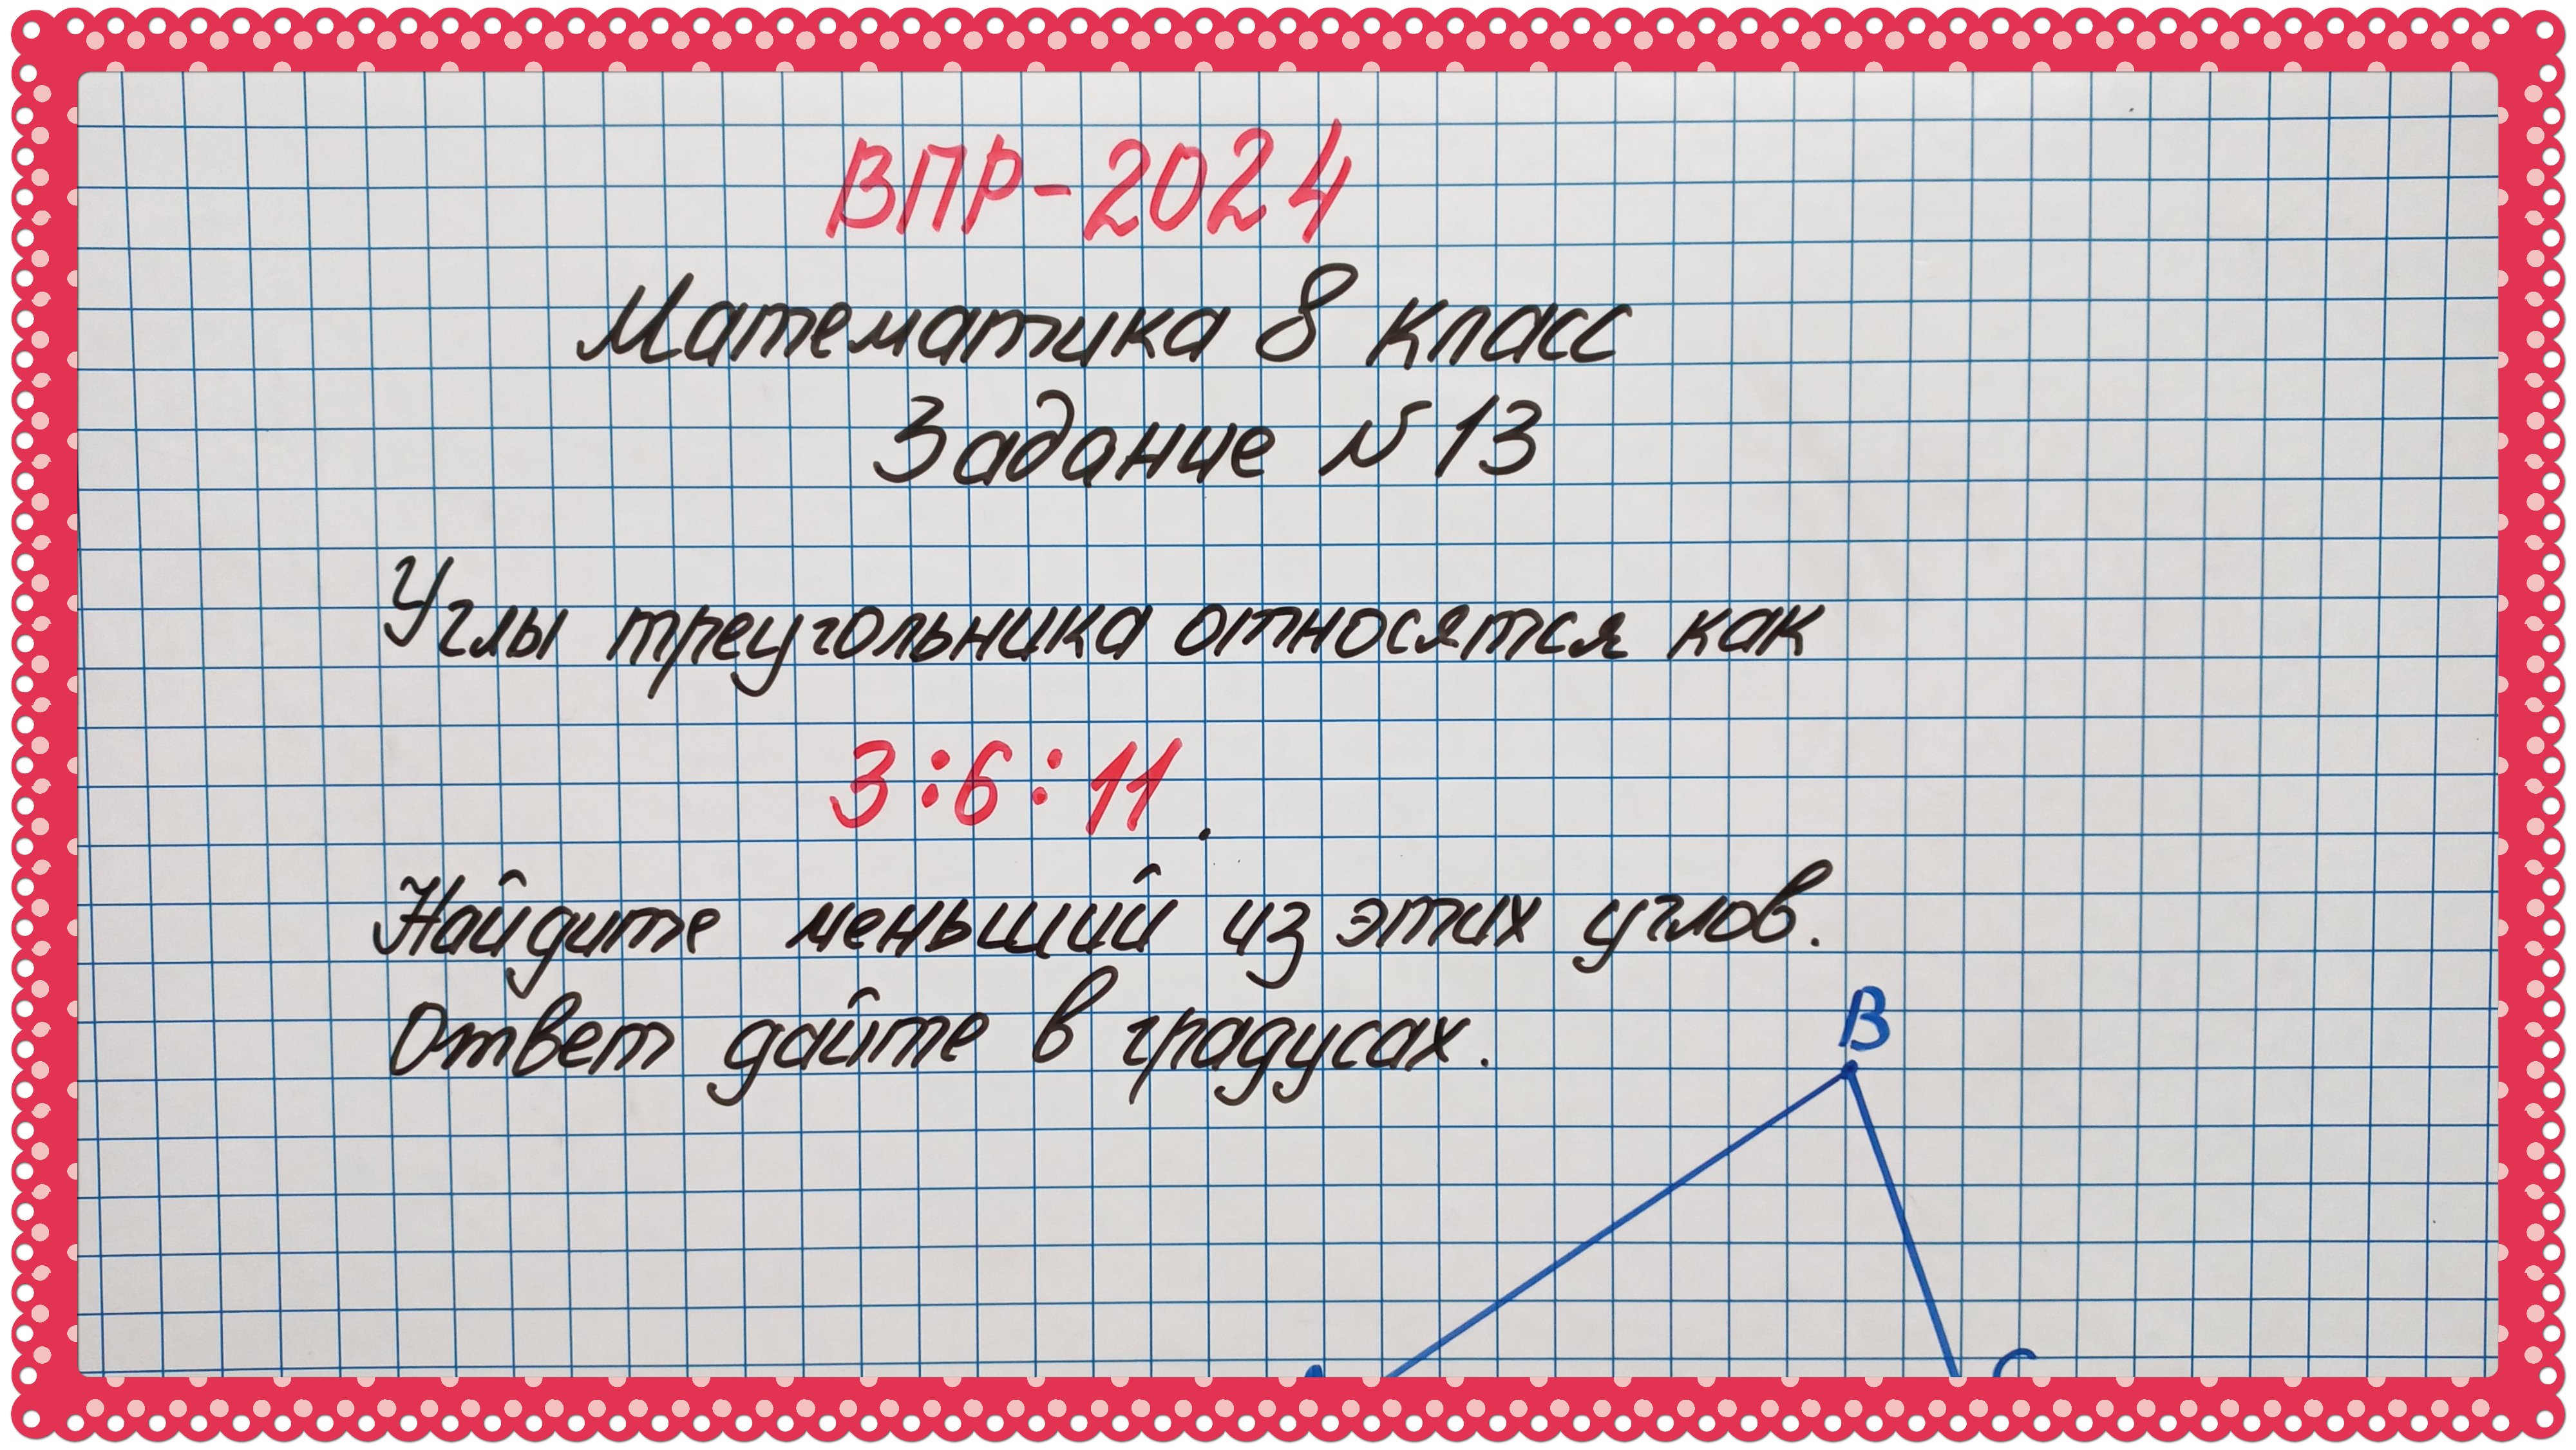 ВПР-2024
Математика 8 класс
Задание №13
Углы треугольника относятся как
3:6:11.
Найдите меньший из этих углов.
Ответ дайте в градусах.
B
A C